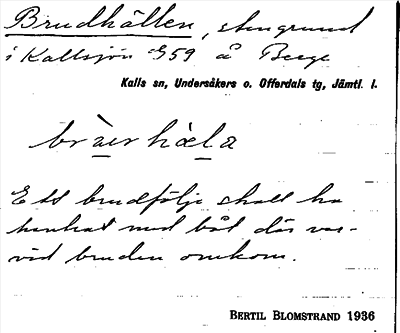 Brudhällen, stengrund
i Kallsjön G59 å Berge
Kalls sn, Undersåkers o. Offerdals tg, Jämtl. l.
Ett brudfölje skall ha
kantrat med båt där var-
vid bruden omkom.
BERTIL BLOMSTRAND 1936